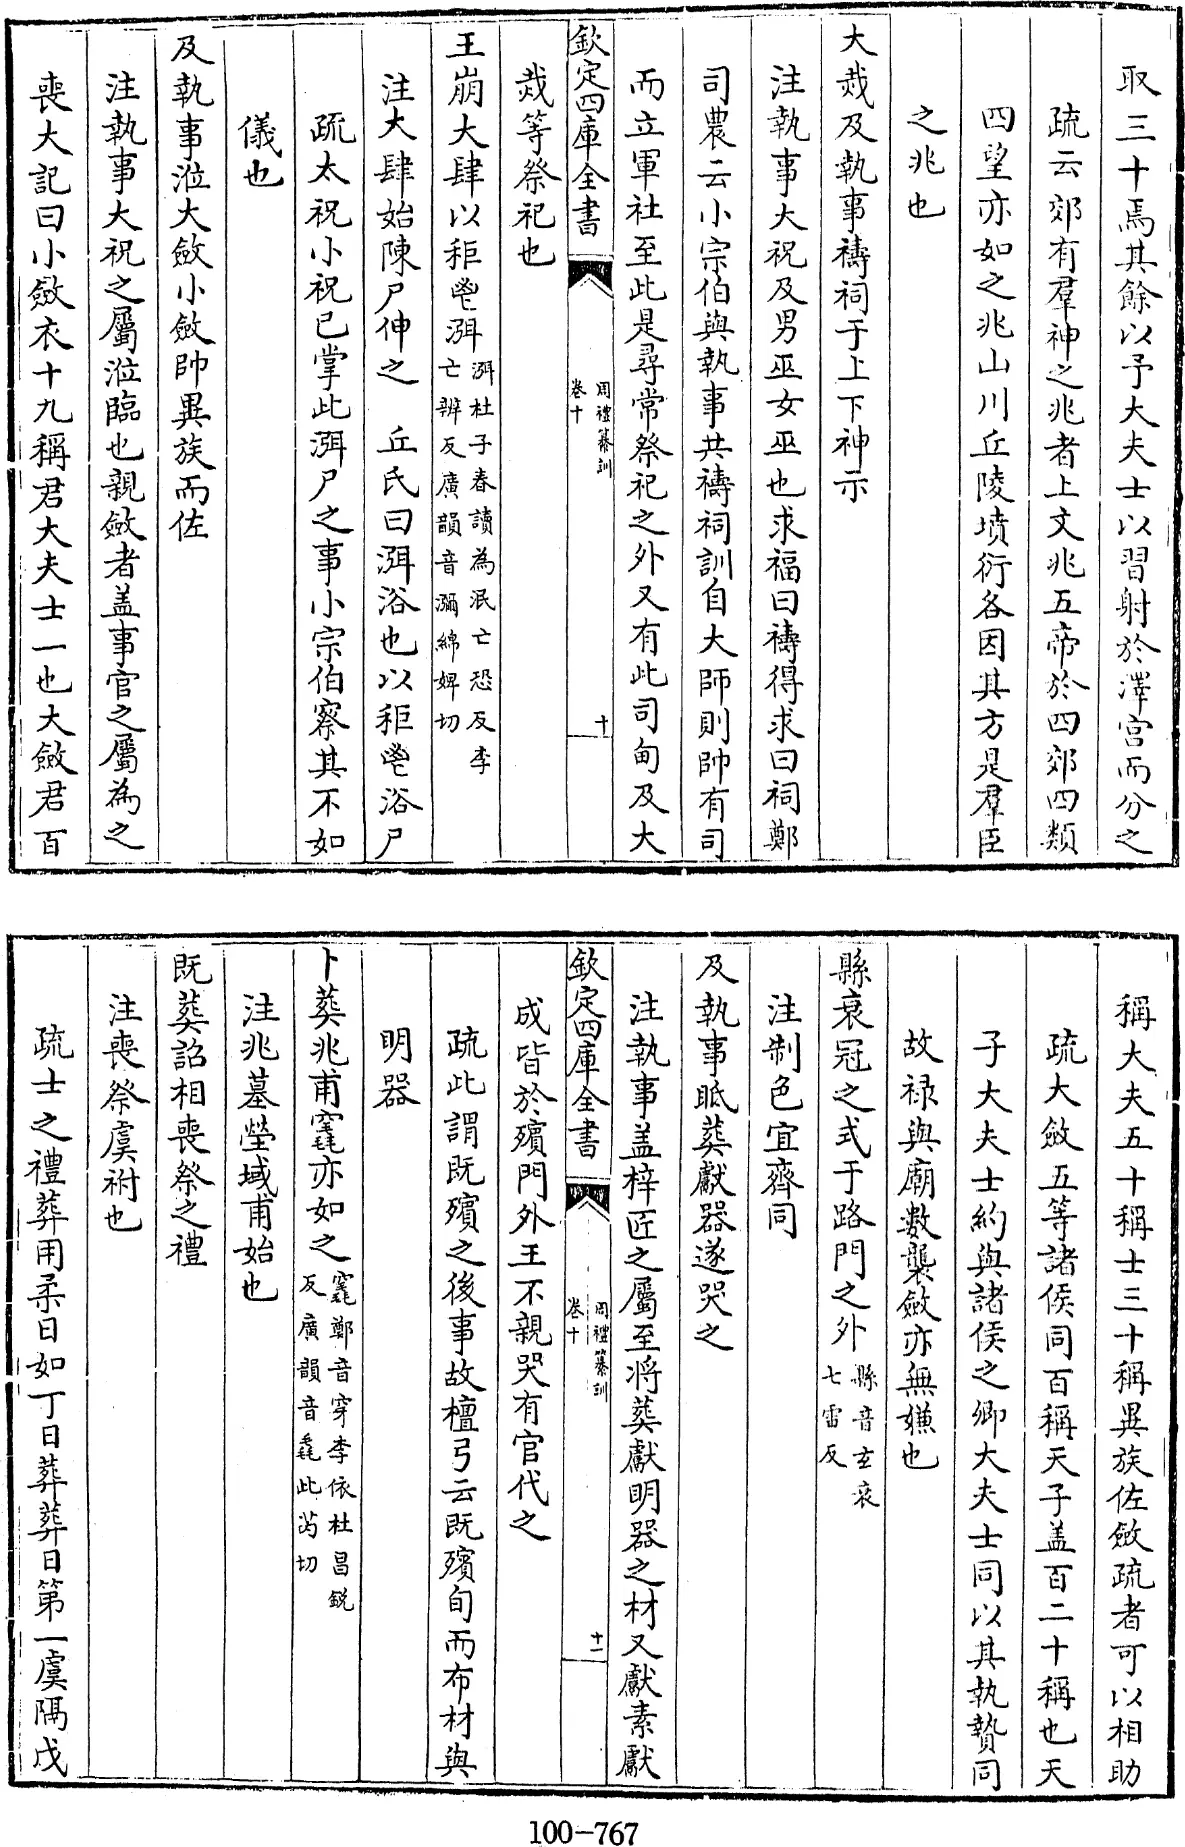 取三十焉其餘以予大夫士以習射於澤宫而分之
疏云郊有羣神之兆者上文兆五帝於四郊四類
四望亦如之兆山川丘陵墳衍各因其方是羣臣
之兆也
大烖及執事禱祠于上下神示
注執事大祝及男巫女巫也求福曰禱得求曰祠鄭
司農云小宗伯與執事共禱祠訓自大師則帥有司
而立軍社至此是尋常祭祀之外又有此司甸及大
欽定四庫全書
周禮纂訓
卷十
十
烖等祭祀也
王崩大肆以秬鬯渳渳杜子春讀為泯亡忍反李
亡辨反廣韻音瀰綿婢切
注大肆始陳尸伸之 丘氏曰渳浴也以秬鬯浴尸
疏太祝小祝已掌此渳尸之事小宗伯察其不如
儀也
及執事涖大斂小斂帥異族而佐
注執事大祝之屬涖臨也親斂者盖事官之屬為之
喪大記曰小斂衣十九稱君大夫士一也大斂君百
稱大夫五十稱士三十稱異族佐斂疏者可以相助
疏大斂五等諸侯同百稱天子盖百二十稱也天
子大夫士約與諸侯之卿大夫士同以其執贄同
故禄與廟數襲斂亦無嫌也
縣衰冠之式于路門之外縣音玄衰
七雷反
注制色宜齊同
及執事眂葬獻器遂哭之
注執事盖梓匠之屬至將葬獻明器之材又獻素獻
欽定四庫全書
周禮纂訓
卷十
十一
成皆於殯門外王不親哭有官代之
疏此謂既殯之後事故檀弓云既殯旬而布材與
明器
卜葬兆甫竁亦如之竁鄭音穿李依杜昌銳
反廣韻音毳此芮切
注兆墓塋域甫始也
既葬詔相喪祭之禮
注喪祭虞祔也
疏士之禮葬用柔日如丁日葬葬日第一虞隔戊
100-767